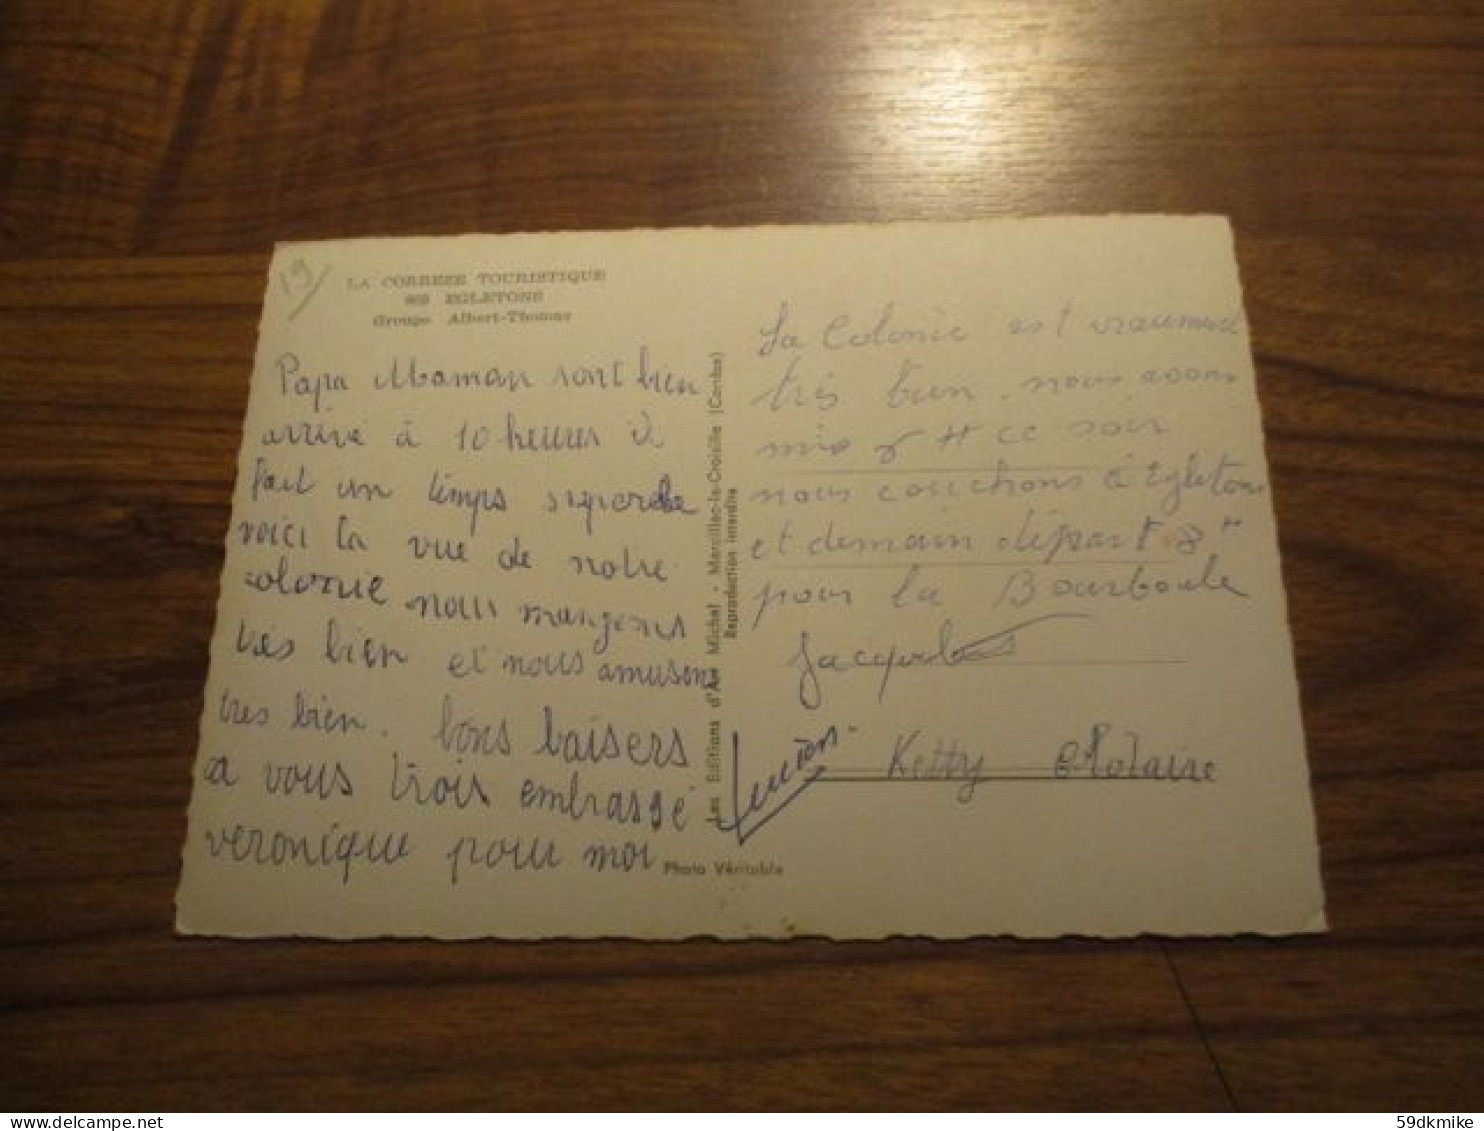 19
LA CORREZE TOURISTIQUE
EGLETONS
Groupe Albert-Thomas
Papa Maman sont bien
arrivé à 10 heures il
fait un temps superbe
voici la vue de notre
colonie nous mangeons
très bien et nous amusons
très bien. bons baisers
a vous trois embrassé
veronique pour moi
Les Editions d'Art Michel - Marcillac-la-Croisille (Corrèze)
Reproduction interdite
Photo Véritable
La Colonie est vraiment
très bien. nous avons
mis 7 H ce soir
nous couchons à Egletons
et demain départ 8 H
pour la Bourboule
Jacques
Lucien.
Ketty